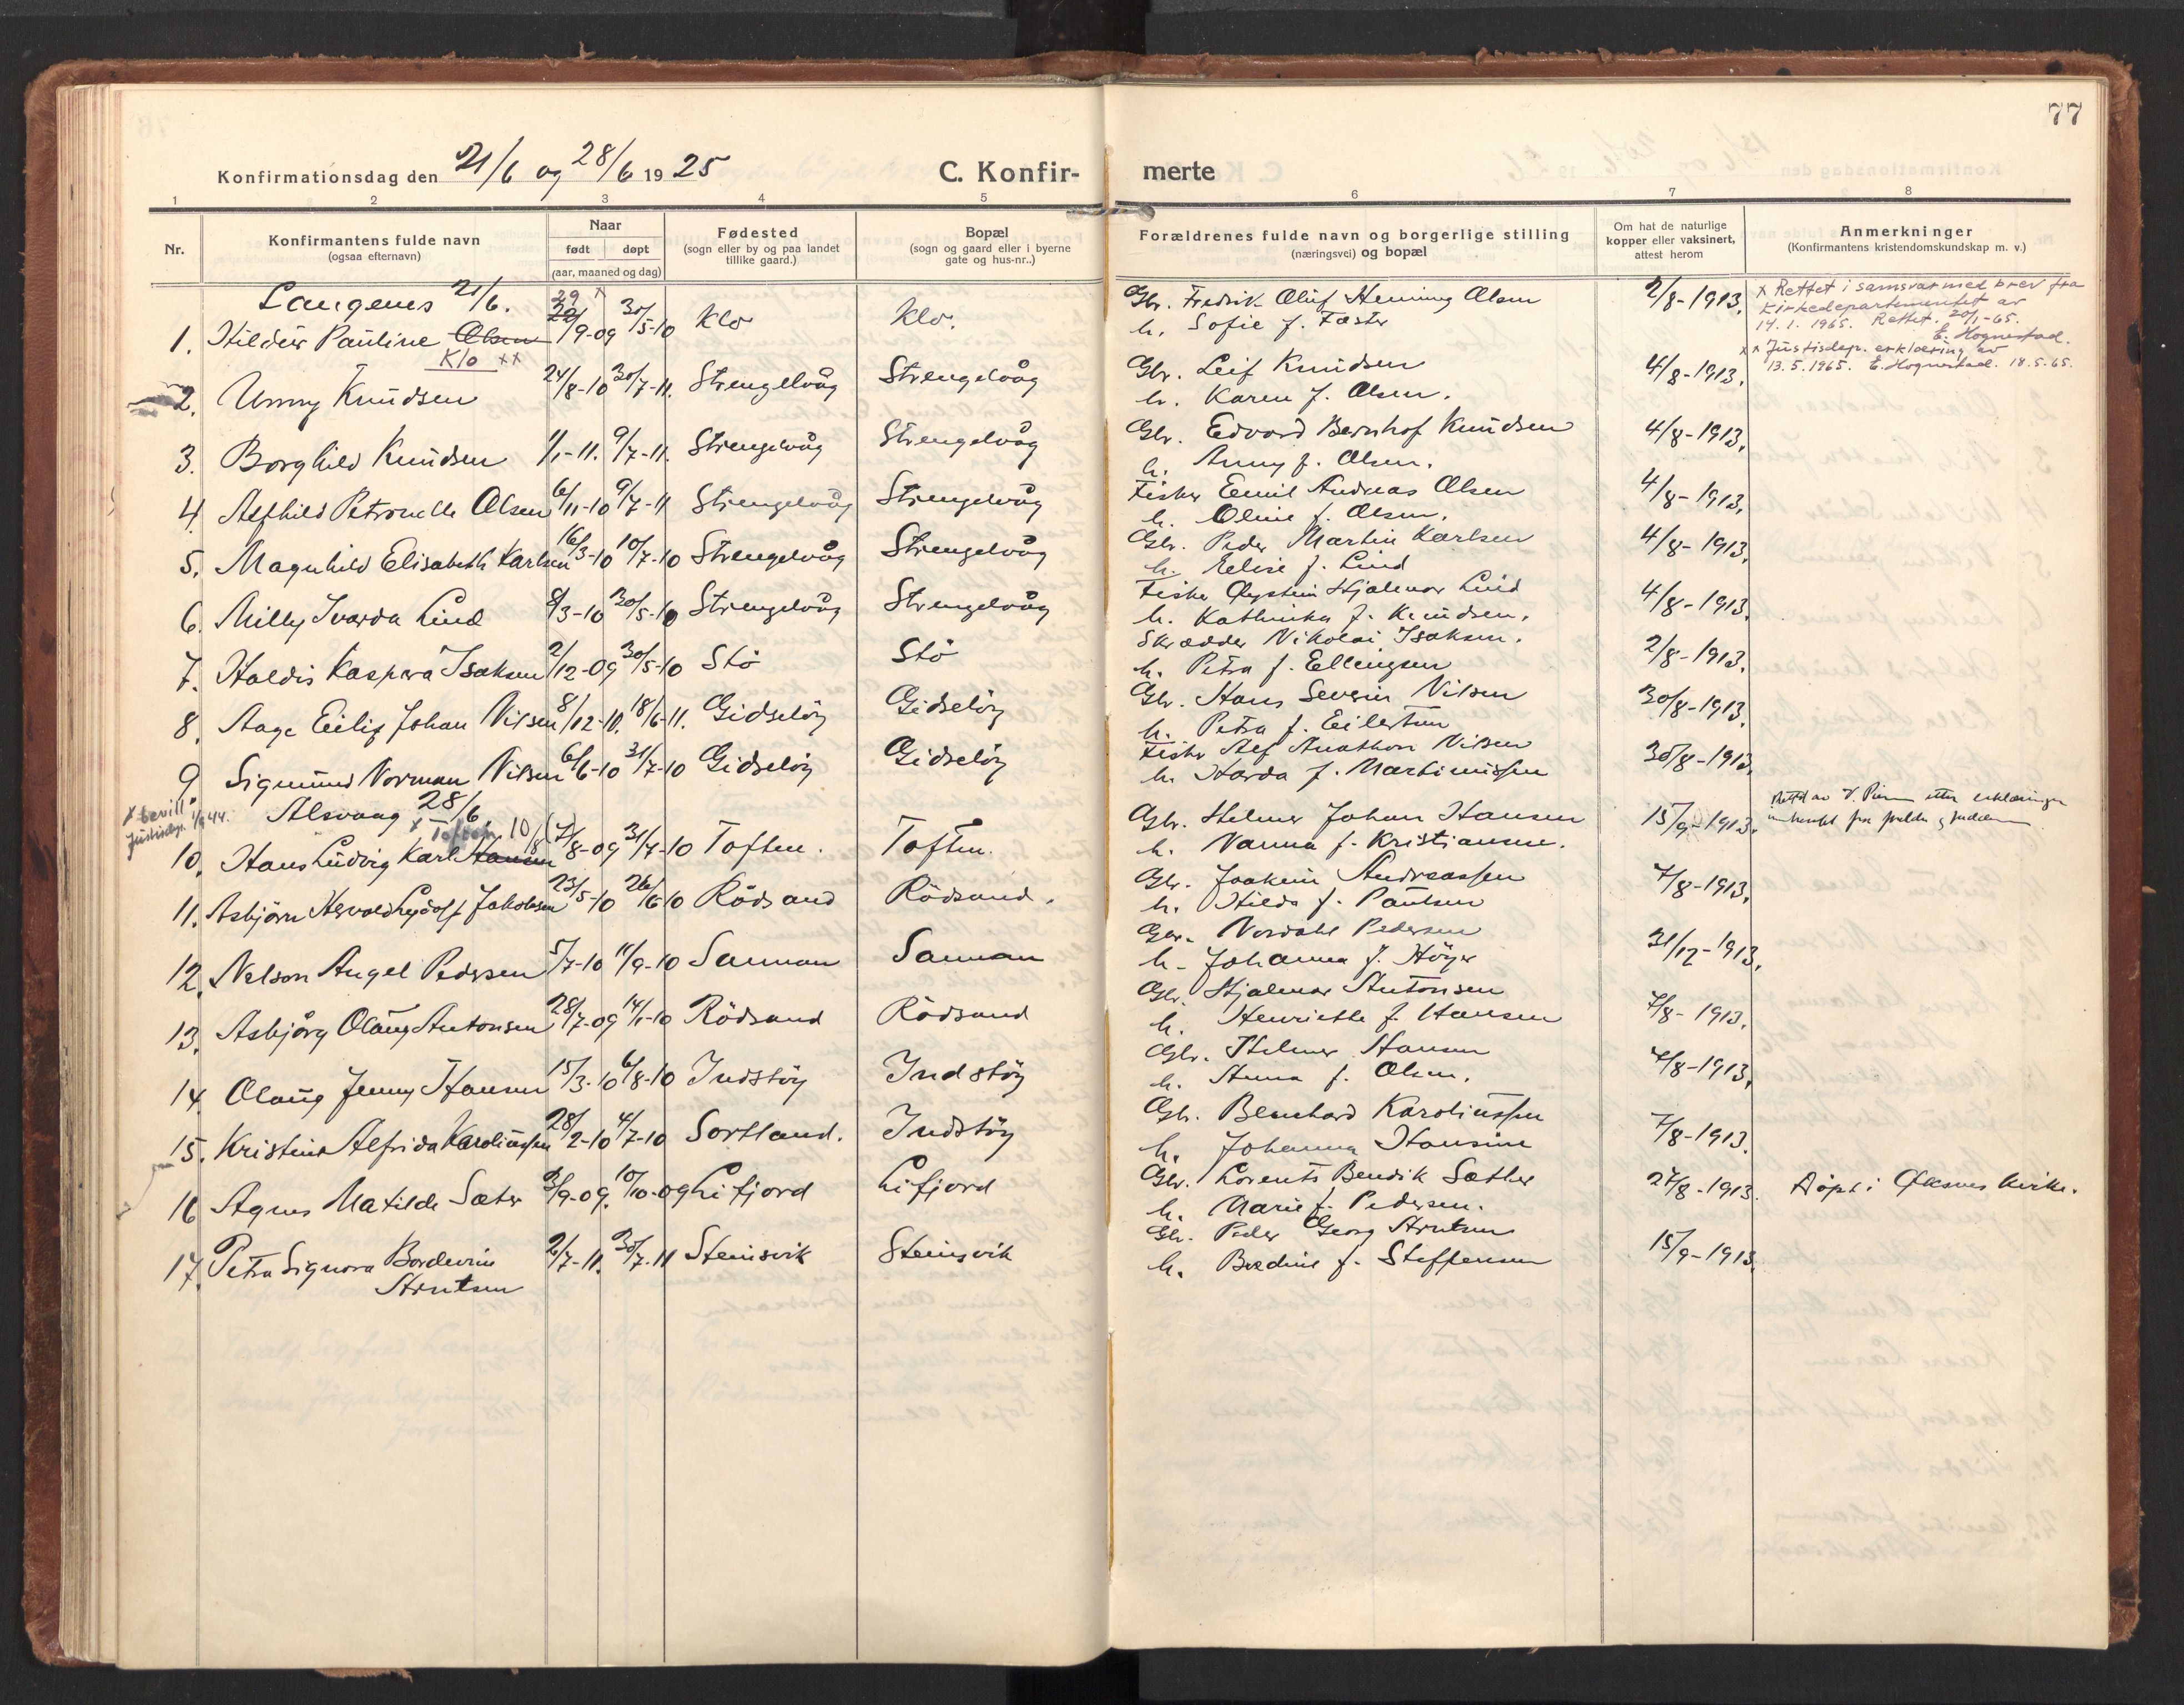 77
Konfirmationsdag den 21/6 og 28/6 1925
C. Konfir-
merte
1 2 3 4 5 6 7 8
Nr.
Konfirmantens fulde navn
(ogsaa efternavn)
Naar
født døpt
(aar, maaned og dag)
Fødested
(sogn eller by og paa landet
tillike gaard.)
Bopæl
(sogn og gaard eller i byerne
gate og hus-nr..)
Forældrenes fulde navn og borgerlige stilling
(næringsvei) og bopæl
Om hat de naturlige
kopper eller vaksinert,
attest herom
Anmerkninger
(Konfirmantens kristendomskundskap m. v.)
Langenes 21/6.
1. Hildur Pauline Olsen 29 x 29/9-09 30/5-10 Klo Klo.
Klo xx
Gbr. Fredrik Oluf Henning Olsen
h. Sofie f. Faster
2/8-1913.
x Rettet i samsvar med brev fra
Kirkedepartementet av
14.1.1965. Rettet. 20/1-65.
E. Hognestad.
x x Justisdep. erklæring av
13.5.1965. E. Hognestad. 18.5.65.
2. Unny Knudsen 24/8-10 30/7-11. Strengelvåg Strengelvåg
Gbr. Leif Knudsen
h. Karen f. Olsen.
4/8-1913.
3. Borghild Knudsen 1/1-11. 9/7-11. Strengelvåg Strengelvåg
Gbr. Edvard Bernhof Knudsen
h. Anny f. Olsen.
4/8-1913.
4. Alfhild Petronelle Olsen 6/11-10 9/7-11 Strengelvåg Strengelvåg
Fisker Emil Andreas Olsen
h. Oline f. Olsen.
4/8-1913.
5. Magnhild Elisabeth Karlsen 16/3-10 10/7-10 Strengelvåg Strengelvåg
Gbr. Peder Martin Karlsen
h. Elise f. Lind
4/8-1913.
6. Milly Ivarda Lind 8/3-10 30/5-10 Strengelvåg Strengelvåg
Fisker Øystein Hjalmar Lind
h. Kathinka f. Knudsen.
4/8-1913.
7. Haldis Kaspera Isaksen 2/12-09 30/5-10 Stö Stö
Skrædder Nikolai Isaksen.
h. Petra f. Ellingsen
2/8-1913.
8. Aage Eilif Johan Nilsen 8/12-10. 18/6-11. Gidselöy Gidselöy
Gbr. Hans Severin Nilsen
h. Petra f. Eilertsen
30/8-1913.
9 Sigmund Norman Nilsen 6/6-10 31/7-10 Gidselöy Gidselöy
Fisker Alf Anathon Nilsen
h. Harda f. Martinussen
30/8-1913.
Alsvaag 28/6.
x bevill
Justisdep. 1/2 44.
x Toften
10. Hans Ludvig Karl Hansen 10/8 (7/8-09 31/7-10 Toften. Toften.
Gbr. Helmer Johan Hansen
h. Nanna f. Kristiansen.
15/9-1913.
Rettet av
11. Asbjörn Jakobsen 23/5-10 26/6-10 Rödsand Rödsand.
Gbr. Joakim Andreassen
h. Hilda f. Paulsen
7/8-1913.
12. Nelson Angel Pedersen 5/7-10 11/9-10 Sannan Sannan
Gbr. Nordahl Pedersen
h. Johanna f. Höyer
31/12-1913.
13. Asbjörg Olaug Antonsen 28/7-09 14/1-10 Rödsand Rödsand
Gbr. Hjalmar Antonsen
h. Henriette f. Hansen
7/8-1913.
14. Olaug Jenny Hansen 15/3-10 6/8-10 Indstöy Indstöy
Gbr. Hilmer Hansen
h. Anna f. Olsen.
7/8-1913.
15. Kristine Alfrida Karoliussen 28/2-10 4/7-10 Sortland. Indstöy
Gbr. Bernhard Karoliussen
h. Johanna Hansine
7/8-1913.
16 Agnes Matilde Sæter 3/9-09. 10/10-09 Lifjord Lifjord
Gbr. Lorents Bendik Sæther
h. Marie f. Pedersen.
27/8-1913.
Döpt i Øksnes kirke.
17. Petra Signora Bordevine 2/7-11. 30/7-11 Steinsvik Steinsvik
Arntsen
Gbr. Peder Georg Arntsen
h. Bordine f. Steffensen
15/9-1913.